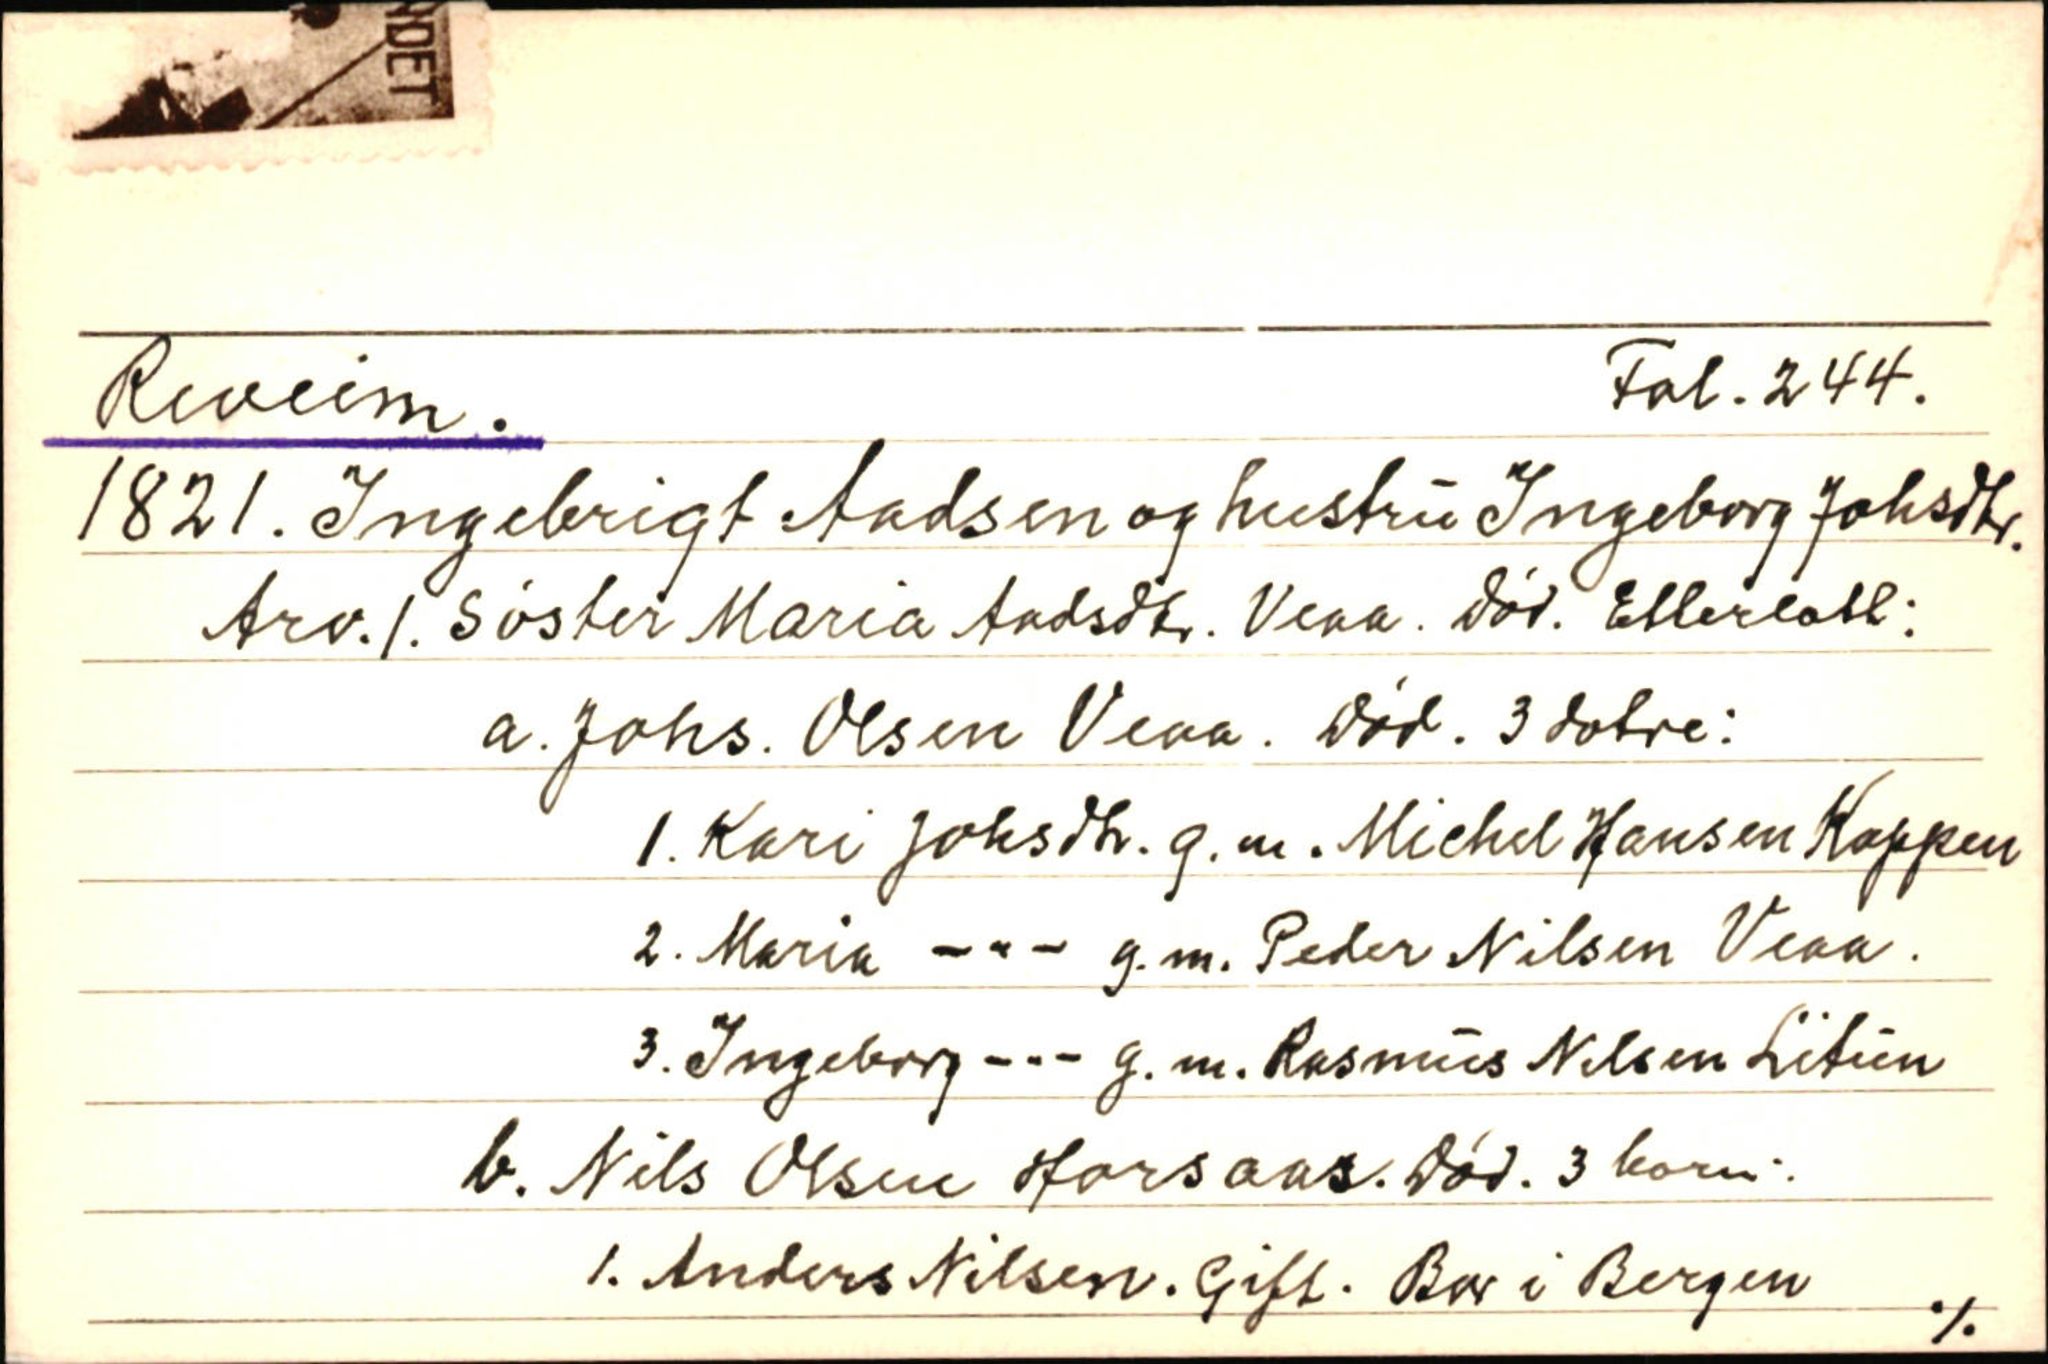 NDET
Reveim. Fol. 244.
1821. Ingebrigt Aadsen og hustrū Ingeborg Johsdtr.
Arv. 1. Söster Maria Aadsdtr. Veaa. Död. Etterlatt:
a. Johs. Olsen Veaa. Död. 3 dotre:
1. Kari Johsdtr. g.m. Michel Hansen Kappen
2. Maria -"- g.m. Peder Nilsen Veaa.
3. Ingeborg --- g.m. Rasmūs Nilsen Litūn
b. Nils Olsen Horsaas. Död. 3 born:
1. Anders Nilsen. Gift. Bor i Bergen
./.